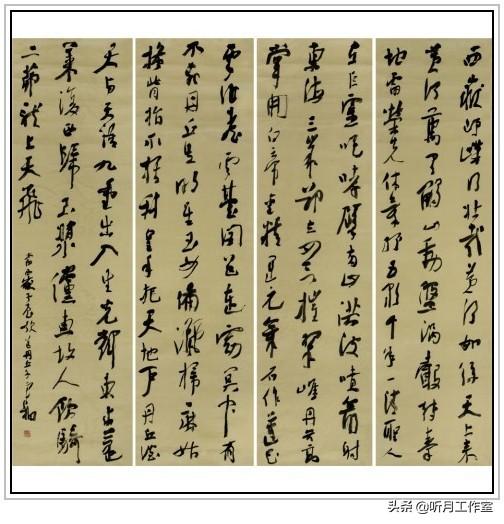 西嶽峥嵘何壮哉黄河如絲天上来
黄河萬里觸山動盤渦轂轉秦
地雷榮光休氣紛五彩千年一清聖人
在巨靈咆哮擘两山洪波噴箭射
東海三峯却立如欲摧翠峰丹谷高
掌開白帝金精運元氣石作蓮花
雲作臺雲臺閣道連窈冥中有
不死丹丘生明星玉女備灑掃麻姑
搔背指爪輕我皇手把天地户丹丘談
天与天語九重出入生光輝東求蓬
萊復西歸玉漿儻惠故人飲騎
二茅龍上天飛
头条 @听月工作室